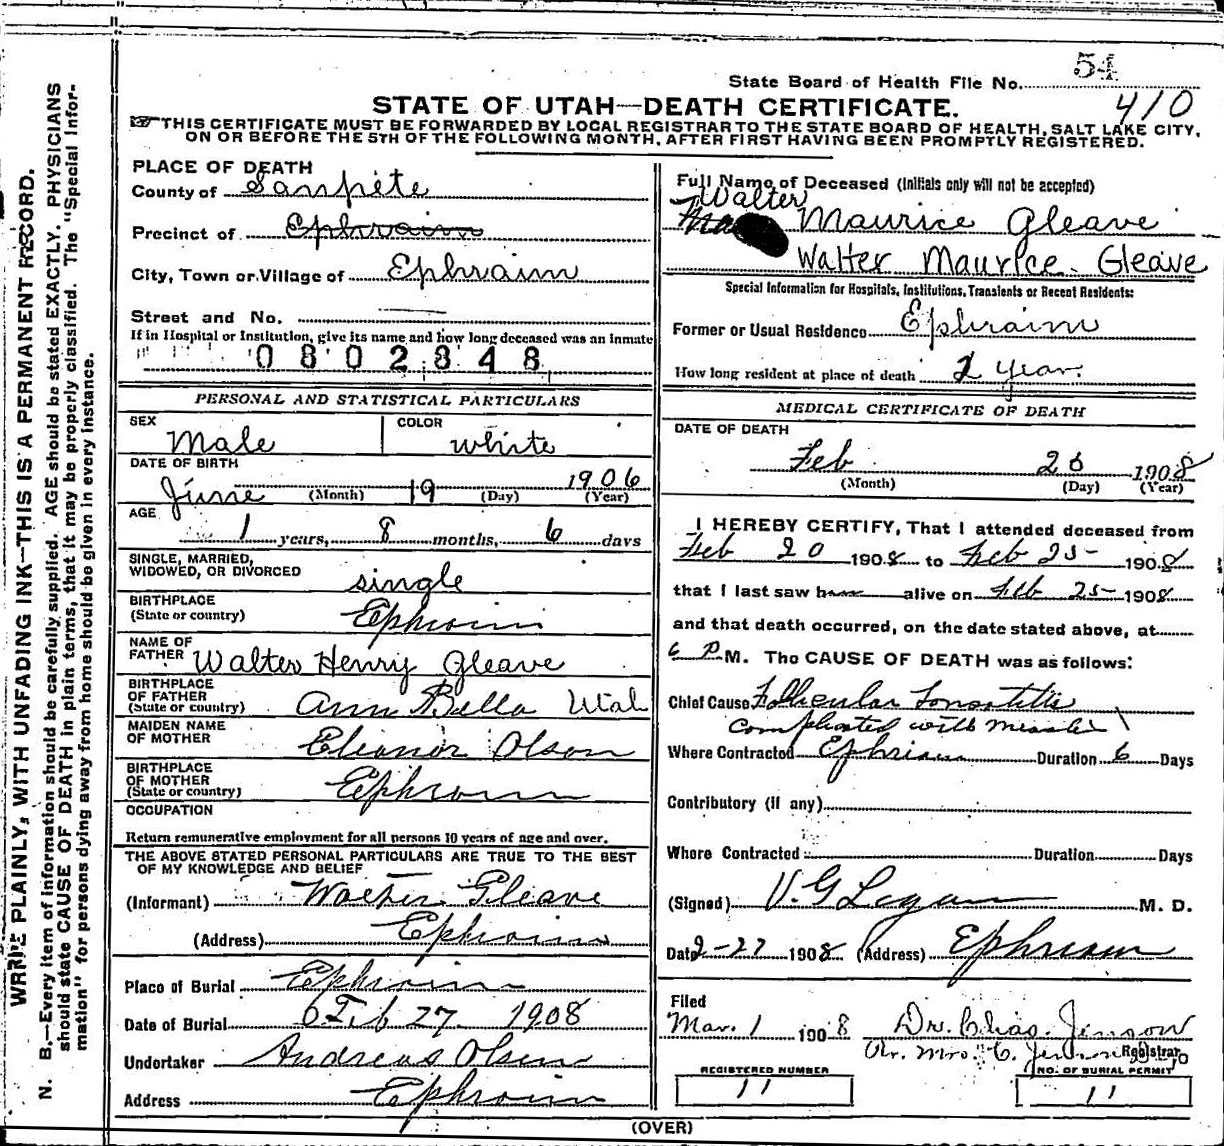 State Board of Health File No. 54
410
STATE OF UTAH—DEATH CERTIFICATE.
THIS CERTIFICATE MUST BE FORWARDED BY LOCAL REGISTRAR TO THE STATE BOARD OF HEALTH, SALT LAKE CITY,
ON OR BEFORE THE 5TH OF THE FOLLOWING MONTH, AFTER FIRST HAVING BEEN PROMPTLY REGISTERED.
WRITE PLAINLY, WITH UNFADING INK—THIS IS A PERMANENT RECORD.
N. B.—Every item of information should be carefully supplied. AGE should be stated EXACTLY. PHYSICIANS
should state CAUSE OF DEATH in plain terms, that it may be properly classified. The "Special Infor-
mation" for persons dying away from home should be given in every instance.
PLACE OF DEATH
County of Sanpete
Precinct of Ephraim
City, Town or Village of Ephraim
Street and No.
If in Hospital or Institution, give its name and how long deceased was an inmate
0802848
PERSONAL AND STATISTICAL PARTICULARS
SEX Male COLOR white
DATE OF BIRTH
June (Month) 19 (Day) 1906 (Year)
AGE
1 years, 8 months, 6 days
SINGLE, MARRIED,
WIDOWED, OR DIVORCED single
BIRTHPLACE
(State or country) Ephraim
NAME OF
FATHER Walter Henry Gleave
BIRTHPLACE
OF FATHER
(State or country) Ann Bella Utah
MAIDEN NAME
OF MOTHER Eleanor Olson
BIRTHPLACE
OF MOTHER
(State or country) Ephraim
OCCUPATION
Return remunerative employment for all persons 10 years of age and over.
THE ABOVE STATED PERSONAL PARTICULARS ARE TRUE TO THE BEST
OF MY KNOWLEDGE AND BELIEF
(Informant) Walter Gleave
(Address) Ephraim
Place of Burial Ephraim
Date of Burial Feb 27 1908
Undertaker Andreas Olsen
Address Ephraim
Full Name of Deceased (Initials only will not be accepted)
Walter
Maurice Gleave
Walter Maurice Gleave
Special Information for Hospitals, Institutions, Transients or Recent Residents:
Former or Usual Residence Ephraim
How long resident at place of death year.
MEDICAL CERTIFICATE OF DEATH
DATE OF DEATH
Feb 26 1908
(Month) (Day) (Year)
I HEREBY CERTIFY, That I attended deceased from
Feb 20 1908 to Feb 25 1908
that I last saw h alive on Feb 25 1908
and that death occurred, on the date stated above, at
6 P M. The CAUSE OF DEATH was as follows:
Chief Cause Follicular Tonsotitis
Complicated with Measles
Where Contracted Ephriam Duration 6 Days
Contributory (if any)
Where Contracted Duration Days
(Signed) V. G Logan M. D.
Date 2-27 1908 (Address) Ephriam
Filed
Mar. 1 1908 Dr. Chas. Jenson
Pr. Mrs. C. Jenson Registrar
REGISTERED NUMBER
11
NO. OF BURIAL PERMIT
11
(OVER)